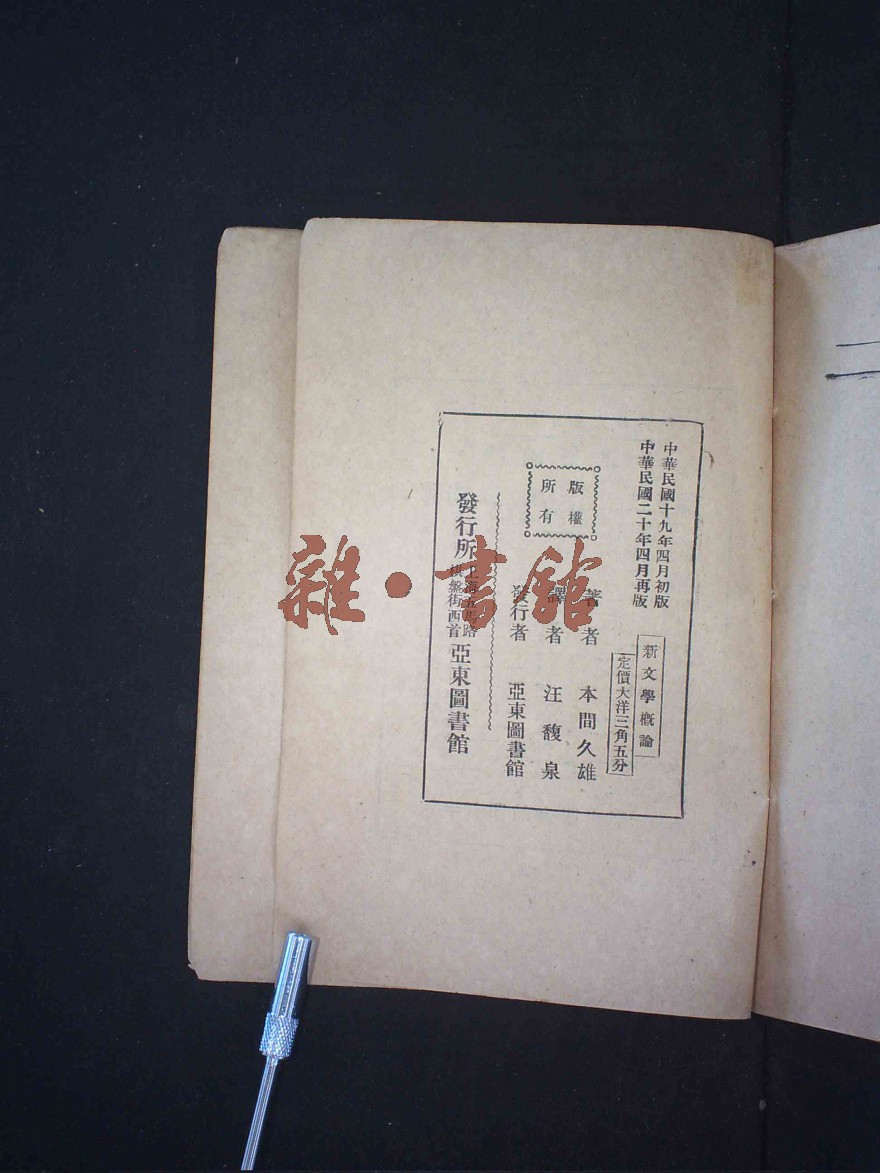 中華民國十九年四月初版
中華民國二十年四月再版
新文學概論
定價大洋三角五分
版權
所有
著者 本間久雄
譯者 汪馥泉
發行者 亞東圖書館
發行所 上海五馬路
棋盤街西首 亞東圖書館
雜·書館